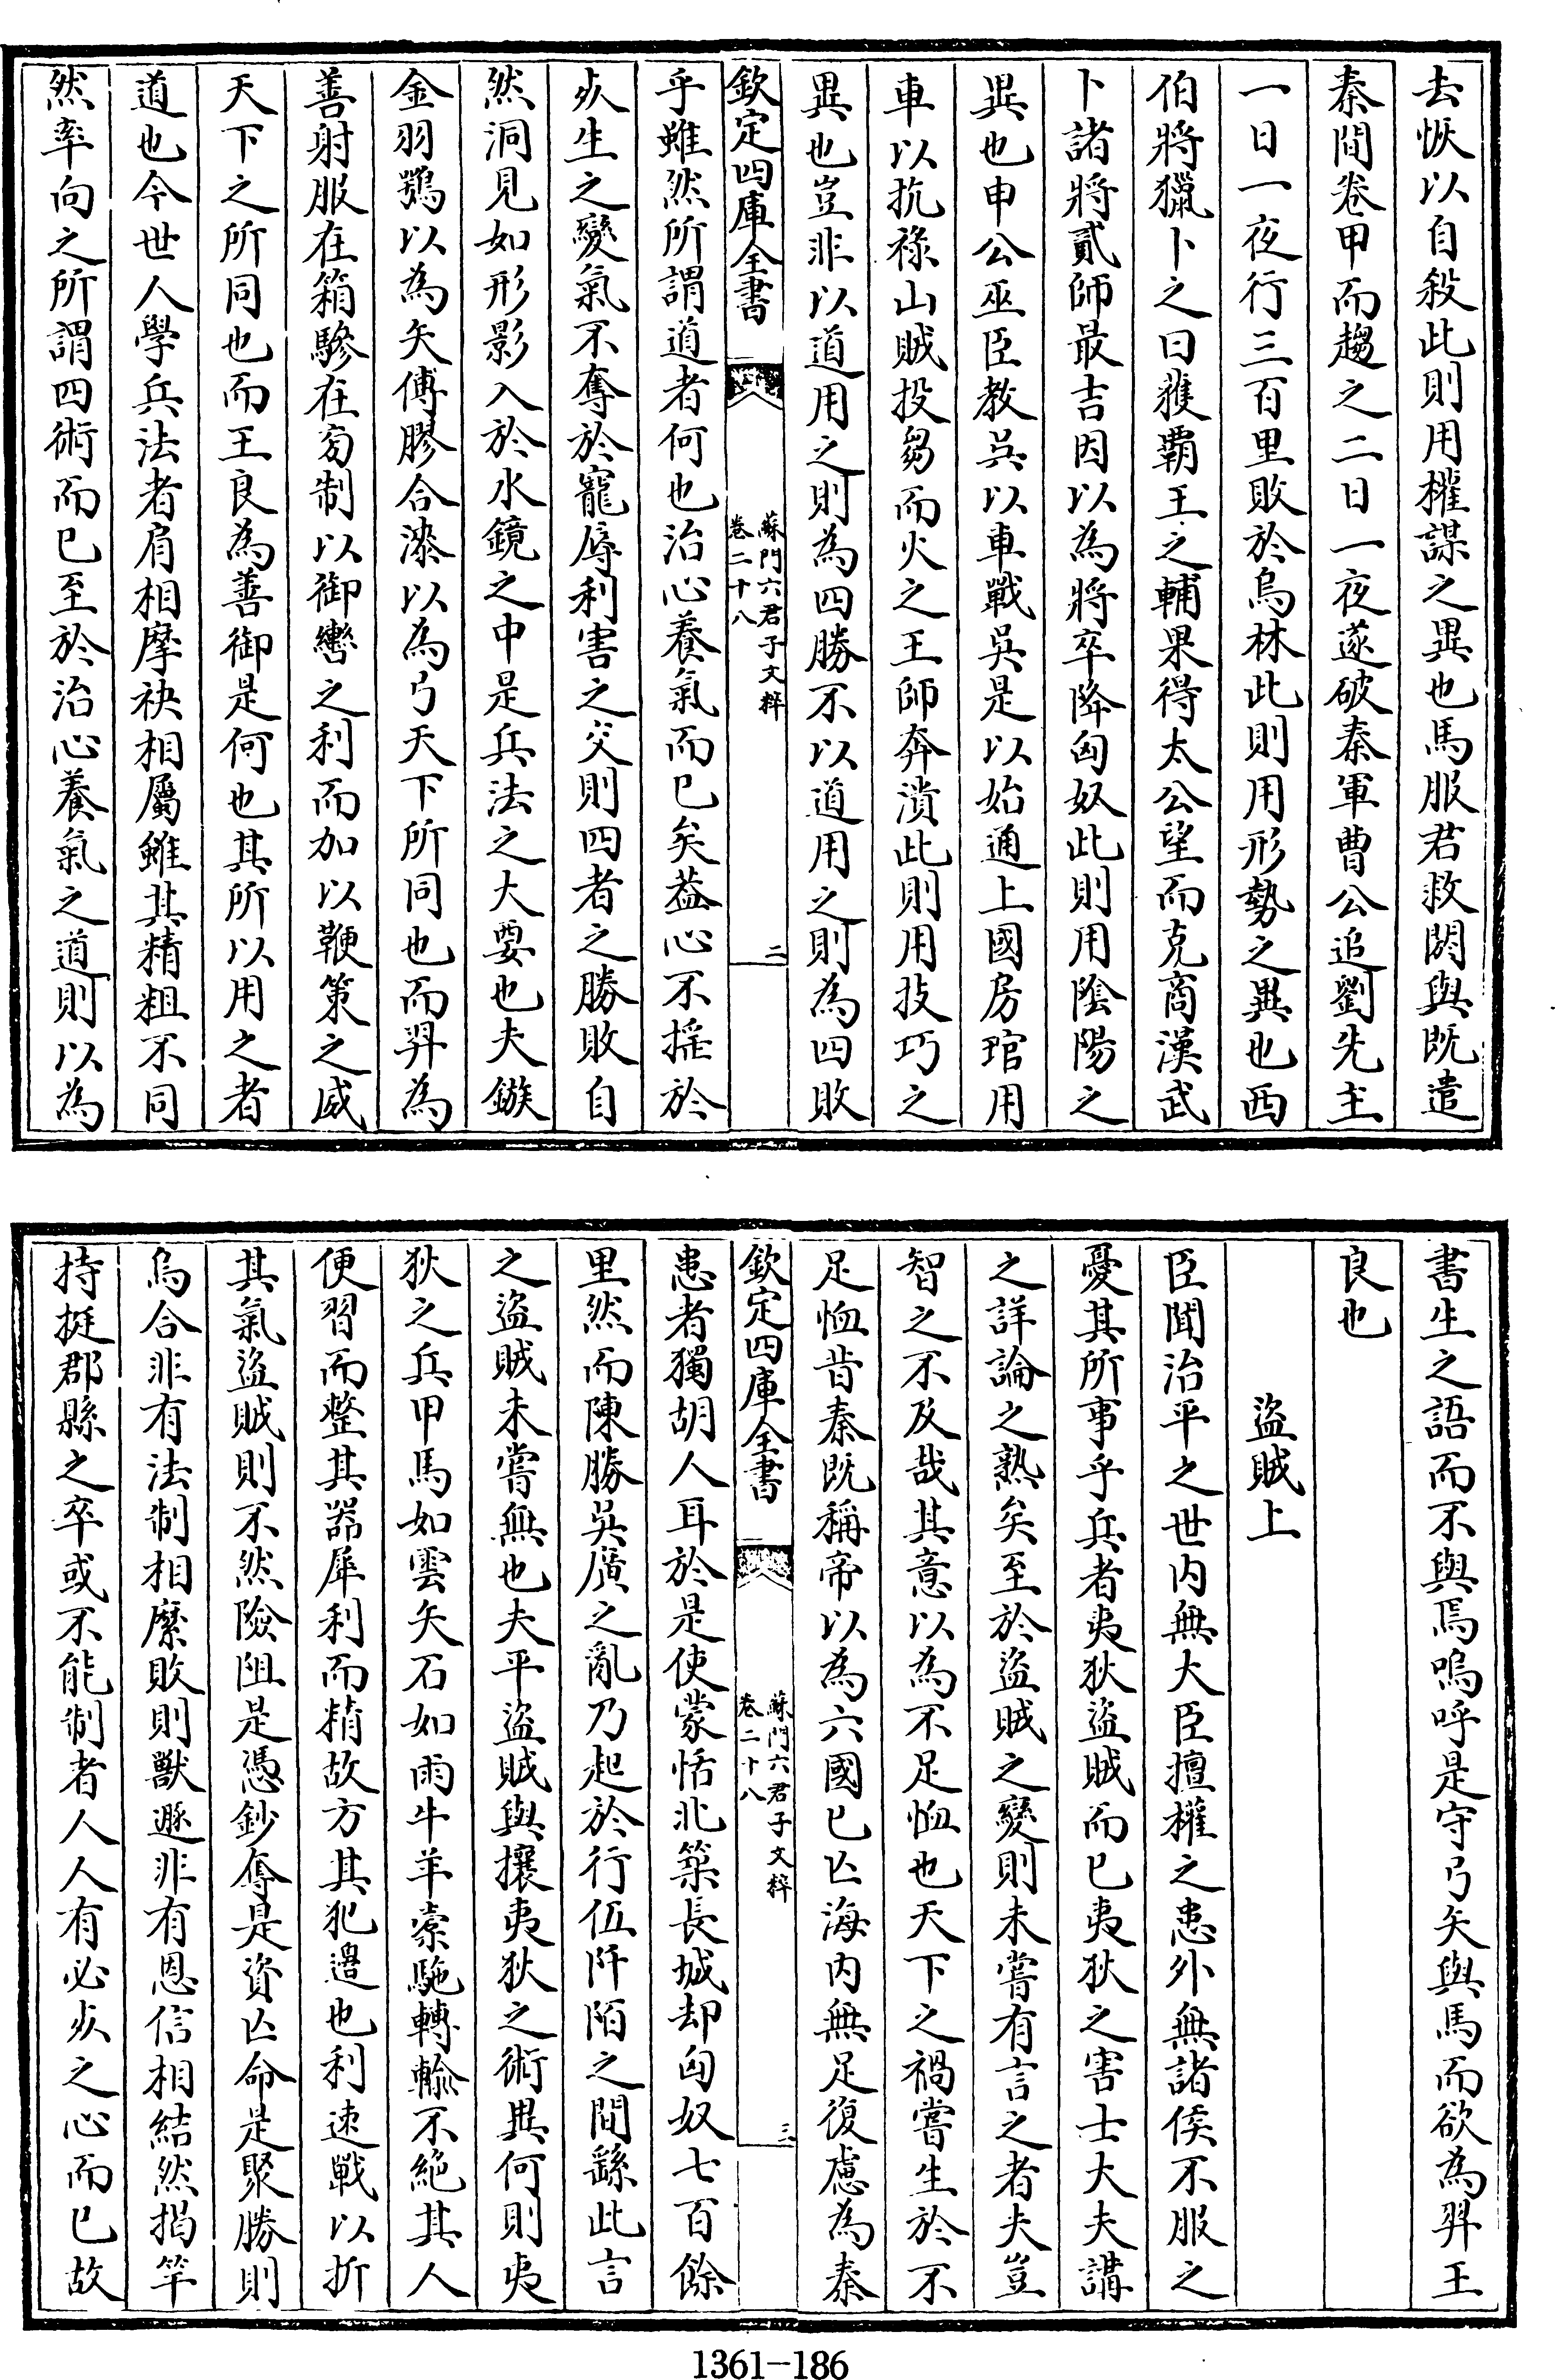 去恢以自殺此則用權謀之異也馬服君救閼與既遣
秦間卷甲而趨之二日一夜遂破秦軍曹公追劉先主
一日一夜行三百里敗於烏林此則用形勢之異也西
伯將獵卜之曰獲霸王之輔果得太公望而克商漢武
卜諸將貳師最吉因以為將卒降匈奴此則用陰陽之
異也申公巫臣教吳以車戰吳是以始通上國房琯用
車以抗祿山賊投芻而火之王師奔潰此則用技巧之
異也豈非以道用之則為四勝不以道用之則為四敗
欽定四庫全書
蘇門六君子文粹
卷二十八
二
乎雖然所謂道者何也治心養氣而已矣葢心不搖於
死生之變氣不奪於寵辱利害之交則四者之勝敗自
然洞見如形影入於水鏡之中是兵法之大要也夫鏃
金羽鶚以為矢傅膠合漆以為弓天下所同也而羿為
善射服在箱驂在芻制以御轡之利而加以鞭策之威
天下之所同也而王良為善御是何也其所以用之者
道也今世人學兵法者肩相摩袂相屬雖其精粗不同
然率向之所謂四術而已至於治心養氣之道則以為
書生之語而不與焉嗚呼是守弓矢與馬而欲為羿王
良也
盜賊上
臣聞治平之世内無大臣擅權之患外無諸侯不服之
憂其所事乎兵者夷狄盜賊而已夷狄之害士大夫講
之詳論之熟矣至於盜賊之變則未嘗有言之者夫豈
智之不及哉其意以為不足恤也天下之禍嘗生於不
足恤昔秦既稱帝以為六國已亡海内無足復慮為秦
欽定四庫全書
蘇門六君子文粹
卷二十八
三
患者獨胡人耳於是使蒙恬北築長城却匈奴七百餘
里然而陳勝吳廣之亂乃起於行伍阡陌之間繇此言
之盜賊未嘗無也夫平盜賊與攘夷狄之術異何則夷
狄之兵甲馬如雲矢石如雨牛羊槖駞轉輸不絶其人
便習而整其器犀利而精故方其犯邊也利速戰以折
其氣盜賊則不然險阻是憑鈔奪是資亡命是聚勝則
烏合非有法制相縻敗則獸遯非有恩信相結然揭竿
持挺郡縣之卒或不能制者人人有必死之心而已故
1361-186